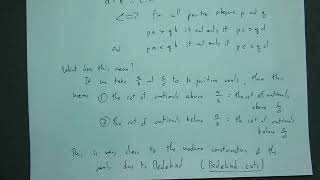 <=> For all positive integers p and q
pa > qb if and only if pc > qd
and pa < qb if and only if pc < qd
What does this mean?
If we take a/b and c/d to be positive reals, then this
means ① the set of rationals above a/b = the set of rationals
above c/d
② the set of rationals below a/b = the set of rationals
below c/d
This is very close to the modern construction of the
reals due to Dedekind (Dedekind cuts)